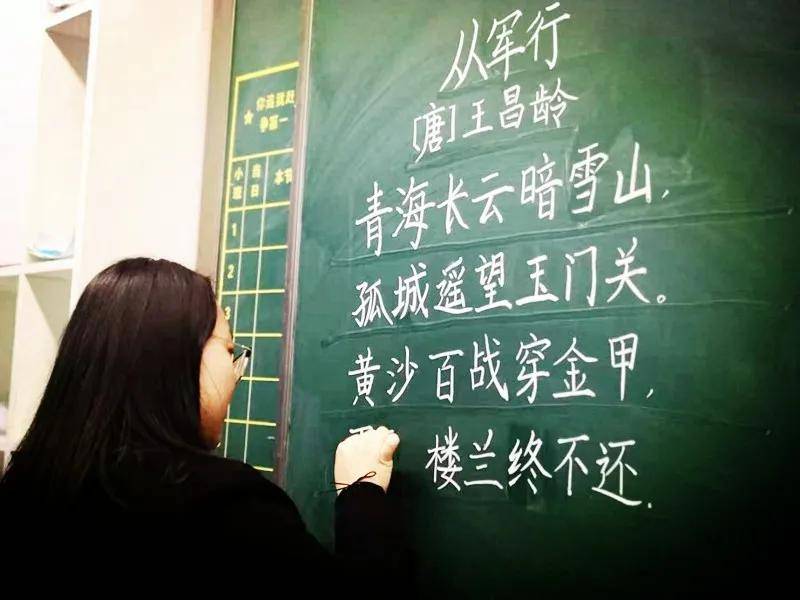 从军行
[唐]王昌龄
青海长云暗雪山,
孤城遥望玉门关。
黄沙百战穿金甲,
楼兰终不还.
争第一
当日
1
2
3